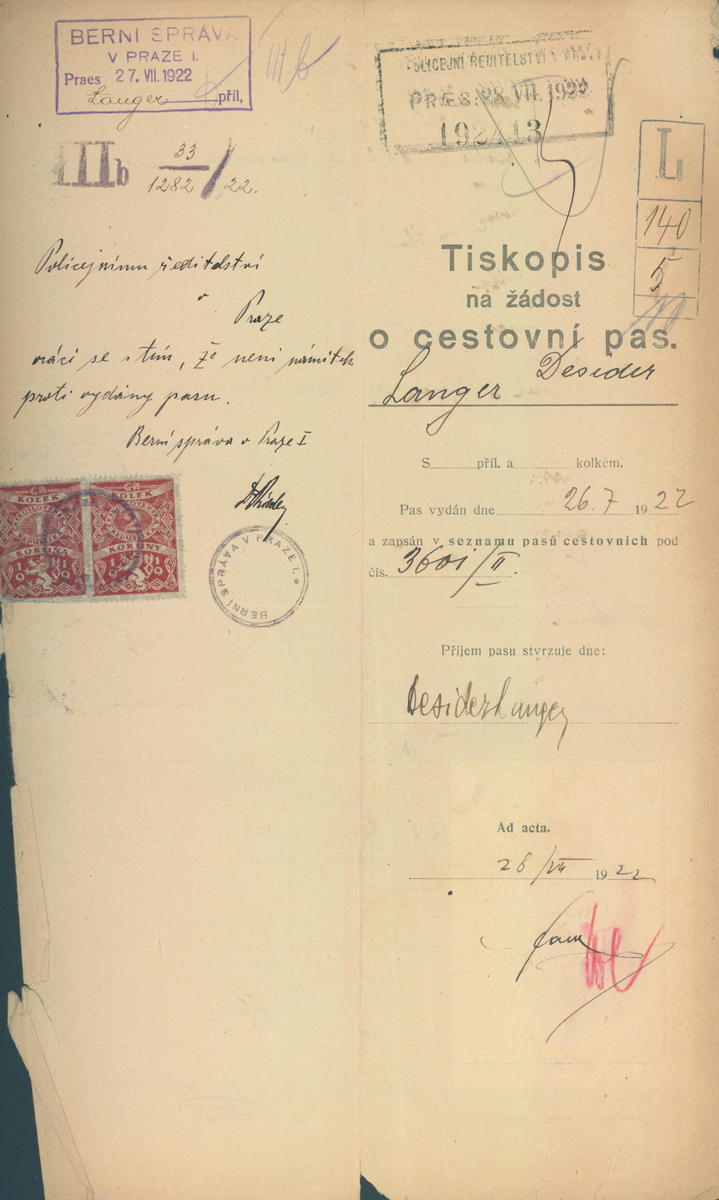 BERNÍ SPRÁVA
V PRAZE I.
Praes 27. VII. 1922
Langer příl,
III b
IIIb 33
1282 / 22.
Policejnímu ředitelství
v
Praze
vrací se s tím, že není námitek
proti vydány pasu.
Berní správa v Praze I
KOLEK
KORUNA
1919
KOLEK
KORUNY
1919
BERNÍ SPRÁVA V PRAZE I.
POLICEJNÍ ŘEDITELSTVÍ V PRAZE
PRAES. 28. VII. 1922
192413
L
140
5
10
Tiskopis
na žádost
o cestovní pas.
Langer Desider
S příl. a kolkem.
Pas vydán dne 26.7 1922
a zapsán v seznamu pasů cestovních pod
čís. 3601/II.
Příjem pasu stvrzuje dne:
Desider Langer
Ad acta.
28/VII 1922